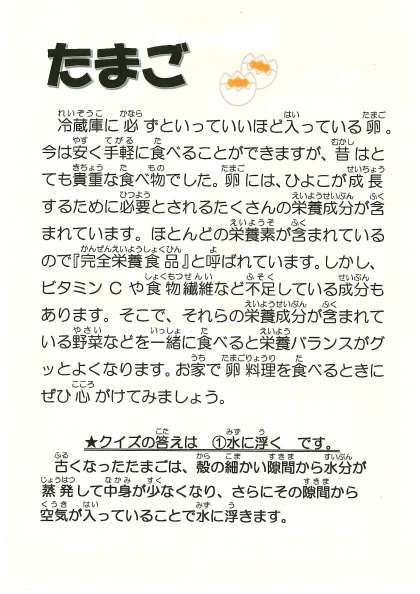 たまご
冷蔵庫に必ずといっていいほど入っている卵。
今は安く手軽に食べることができますが、昔はと
ても貴重な食べ物でした。卵には、ひよこが成長
するために必要とされるたくさんの栄養成分が含
まれています。ほとんどの栄養素が含まれている
ので『完全栄養食品』と呼ばれています。しかし、
ビタミンCや食物繊維など不足している成分も
あります。そこで、それらの栄養成分が含まれて
いる野菜などを一緒に食べると栄養バランスがグ
ッとよくなります。お家で卵料理を食べるときに
ぜひ心がけてみましょう。
★クイズの答えは ①水に浮く です。
古くなったたまごは、殻の細かい隙間から水分が
蒸発して中身が少なくなり、さらにその隙間から
空気が入っていることで水に浮きます。